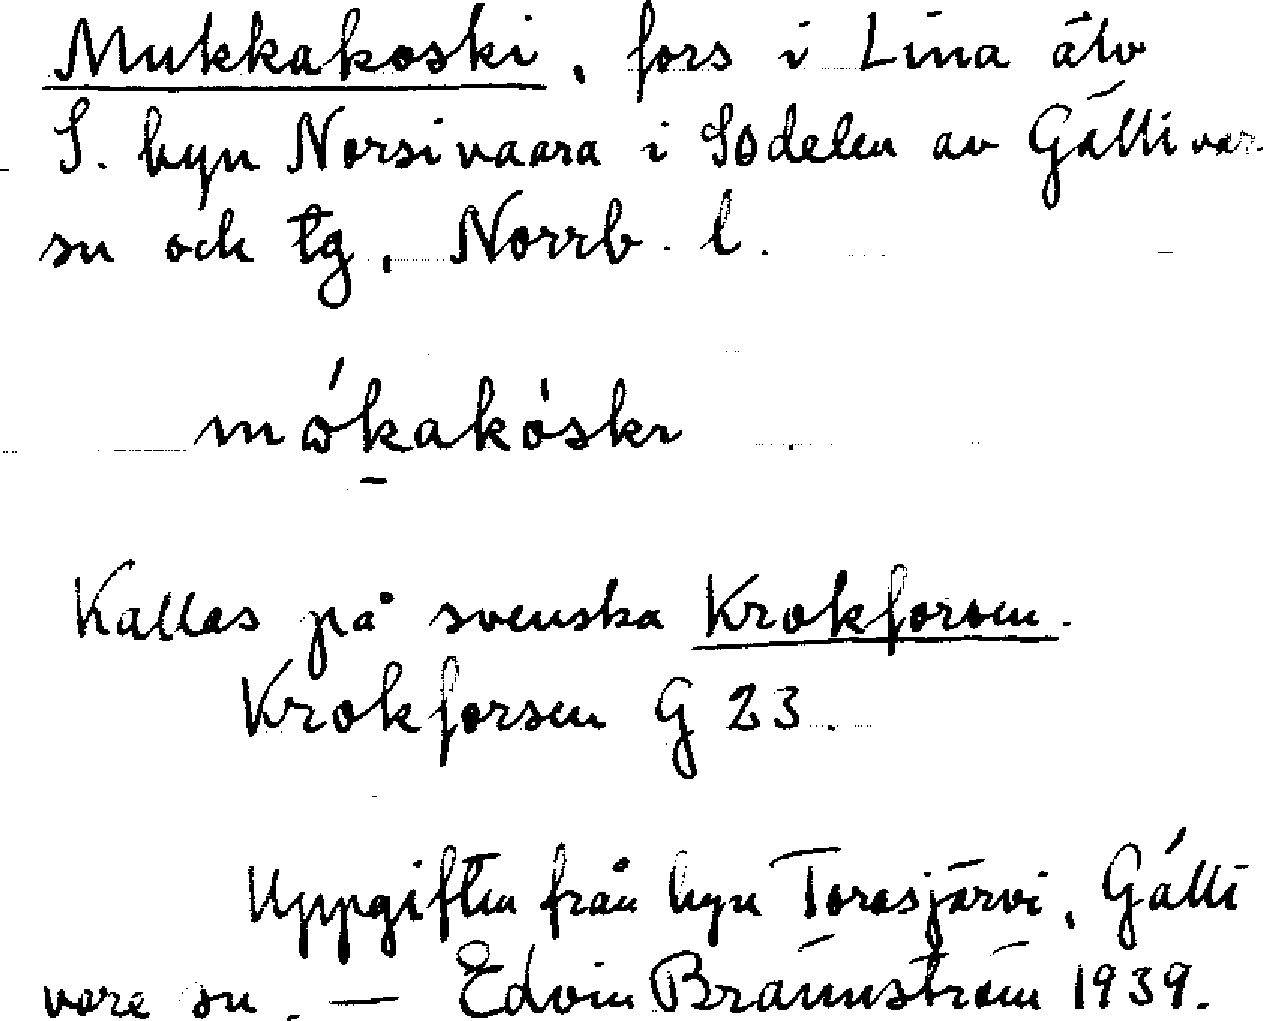 Mukkakoski, fors i Lina älv
S. byn Norsivaara i Sodelen av Gällivar
sn och tg, Norrb. l.
mώkakȯskı
Kallas på svenska Krokforsen.
Krokforsen G 23.
Uppgiften från byn Torasjärvi, Gälli
vare sn. — Edvin Brännström 1939.